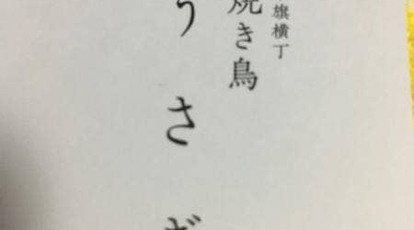 旗横丁
焼き鳥
うさぎ